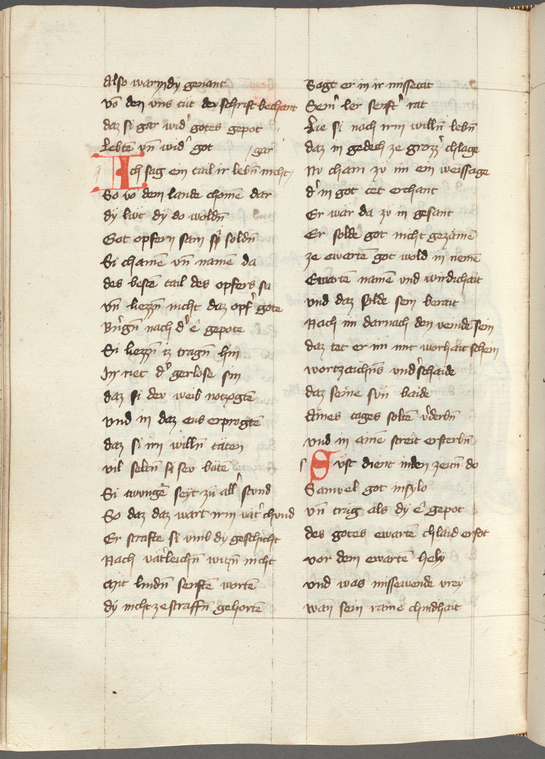 Also warn dy genant
Võ den vns tut dew schrift bechant
daz si gar wid͛ gotes gepot
Lebtñ vñ wid͛ got gar
Ich sag ein tail ir lebñ nicht
So võ dem lande chomẽ dar
dy lüt dy do woldñ
Got opfern sam sy̆ soldñ
Si chamẽ vñ namẽ da
des besẽ tail des opfers sa
vñ liezzñ nicht daz opf͛ gote
Bringñ nach d͛ e gepote
Si hiezzñ iz tragñ hin
In riet d͛ gerlose sin
daz si dew weib notzogtẽ
vnd in daz ens erprogtẽ
daz si irn willñ tätẽ
vil seltñ si sew batẽ
Si twungẽ seyt zu all͛ stund
So daz daz wart irm vat͛ chund
Er strafte si vmb dy geschicht
Nach väterleichñ witzñ nicht
mit lindñ senftẽ wortẽ
dy nicht ze straffñ gehortẽ
Sagt er in ir missetat
Sein͛ ler senft͛ rat
Lie si nach irm willñ lebñ
daz in gedech ze grozz͛ chlage
Nv cham zv im ein weissage
d͛ in got tet erchant
Er war da zv in gesant
Er solde got nicht gezamẽ
ze ewartẽ got wold in nemẽ
Ewartẽ namẽ vnd wirdichait
vnd daz solde sein berait
Nach im darnach den veinde sein
daz tet er im mit worhait schein
wortzaichñs vnd͛schaide
daz seine svn baide
Aines tages soltñ v͛derbñ
vnd in ainẽ streit ersterbñ
Sust dient in den zeitñ do
Samuel got in sylo
vñ trug als dy e gepot
des gotes ewartẽ chlaid ephot
vor dem ewartẽ hely
vnd was missewende vrey
wan sein raine chindhait